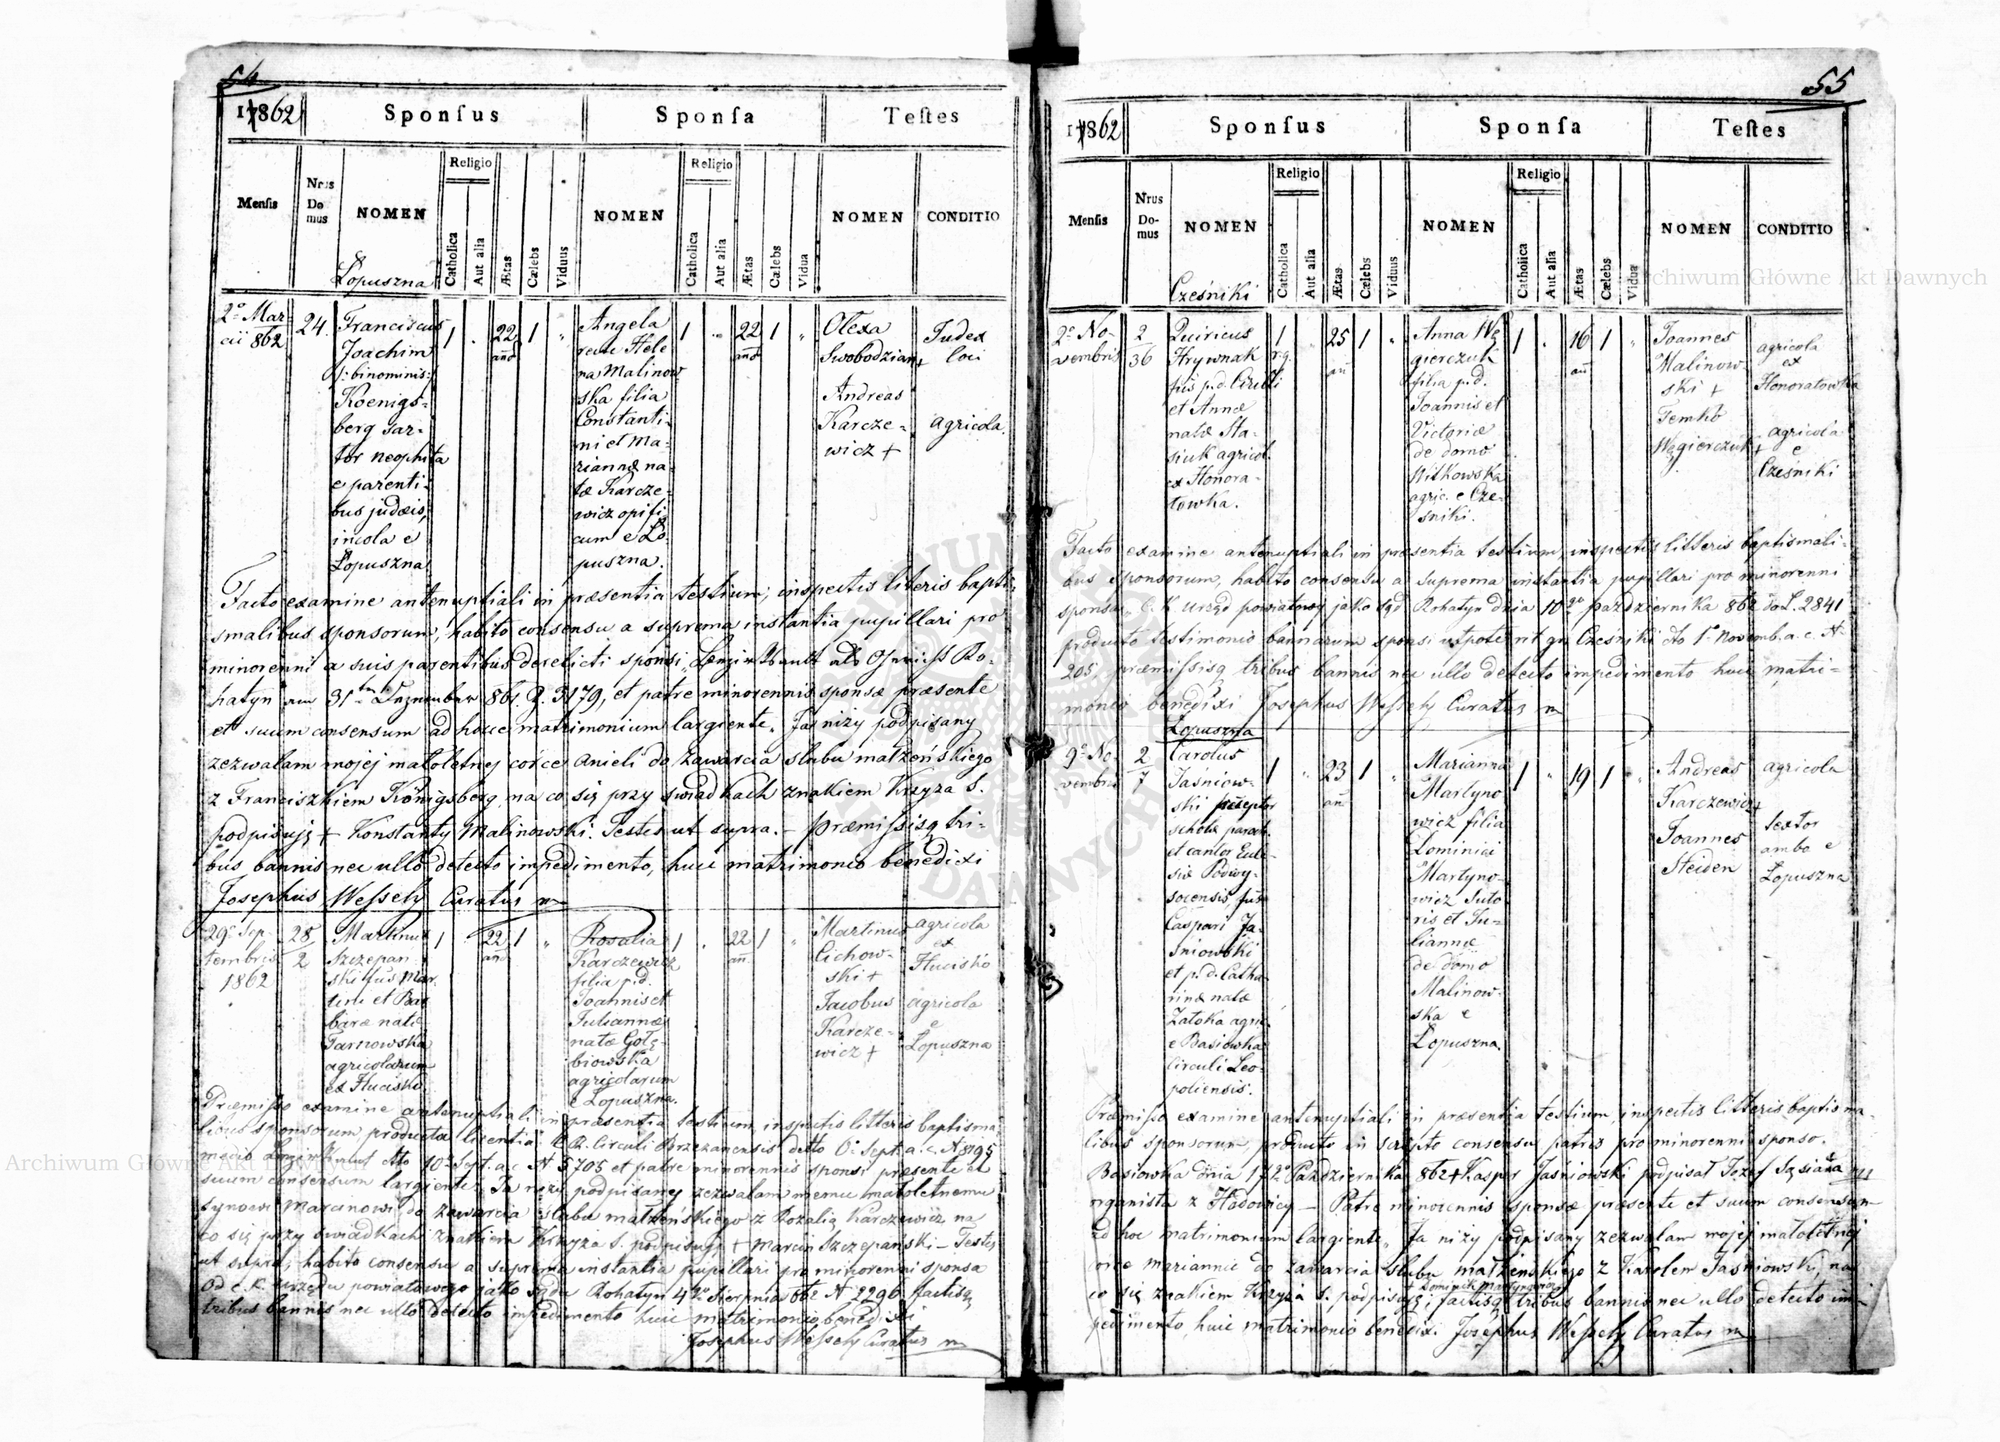 54
17862
Sponſus
Sponſa
Teſtes
Menſis
Nrus Domus
NOMEN
Religio
Catholica
Aut alia
Ætas
Cælebs
Viduus
NOMEN
Religio
Catholica
Aut alia
Ætas
Cælebs
Vidua
NOMEN
CONDITIO
Łopuszna
2º Mar-
cii 862
24.
Franciscus
Joachim
/: binominis:/
Koenigs-
berg sar-
tor neophita
e parenti-
bus judæis,
incola e
Łopuszna
1
22
1
Angela
Hele
na Malinow
ska filia
Constanti-
ni et Ma-
riannæ na-
tæ Karcze-
wicz opifi
cum e Ło
puszna.
1
22
1
Olexa
Swobodzian +
Andreas
Karcze-
wicz +
Judex
loci
agricola.
Facto examine antenuptiali in præsentia testium, inspectis literis bapti-
smalibus sponsorum, habito consensu a suprema instantia pupillari pro
minorenni a suis parentibus derelicti sponsi, als Ro-
hatyn 31 861. 3179, et patre minorennis sponsæ præsente
et suum consensum ad hocce matrimonium largiente. Ja niży podpisany
zezwalam mojéj małoletnej córce Anieli do zawarcia ślubu małżeńskiego
z Franciszkiem Königsberg, na co się przy świadkach znakiem Krzyża S.
podpisuję + Konstanty Malinowski. Testes ut supra. - Præmissisq tri-
bus bannis nec ullo detecto impedimento, huic matrimonio benedixi
Josephus Wessely Curatus
29º Sep-
tembris
1862
28
2
Martinus
Szczepan
ski fus Mar-
tini et Bar
baræ natæ
Tarnowska
agricolarum
ex Hucisko
1
22
1
Rosalia
Karczewicz
filia p.d.
Joannis et
Juliannæ
natæ Gołę-
biowska
agricolarum
e Łopuszna.
1
22
1
Martinus
Cichow-
ski +
Jacobus
Karcze-
wicz +
agricola
ex
Hucisko
agricola
e
Łopuszna
Præmisso examine antenuptiali in præsentia testium, inspectis litteris baptisma-
libus sponsorum, producta licentia Circuli Brzezanensis Sept. a. c. N 8195
Sept. a. c. N 5705 et patre minorennis sponsi præsente et
suum consensum largiente, Ja niży podpisany zezwalam memu małoletnemu
synowi Marcinowi do zawarcia ślubu małżeńskiego z Rozalią Karczewicz na
co się przy świadkach znakiem Krzyża S. podpisuję + Marcin Szczepański - Testes
ut supra, habito consensu a suprema instantia pupillari pro minorenni sponsa
Od c. k. urzędu powiatowego jako sądu Rohatyn 4 Sierpnia 862 N 2296 factisq
tribus bannis nec ullo detecto impedimento huic matrimonio benedixi
Josephus Wessely Curatus
55
17862
Sponſus
Sponſa
Teſtes
Menſis
Nrus Do-mus
NOMEN
Religio
Catholica
Aut alia
Ætas
Cælebs
Viduus
NOMEN
Religio
Catholica
Aut alia
Ætas
Cælebs
Vidua
NOMEN
CONDITIO
Cześniki
2º No-
vembris
2
36
Quiricus
Hrywnak
fus p.d. Cirilli
et Annæ
natæ Sta-
siuk agricol.
ex Honora-
tówka.
1
r.g.
25
1
Anna Wę
gierczuk
filia p.d.
Joannis et
Victoriæ
de domo
Witkowska
agric. e Cze-
śniki.
1
16
1
Joannes
Malinow-
ski +
Temko
Węgierczuk +
agricola
ex
Honoratowka
agricola
e
Cześniki
Facto examine antenuptiali in præsentia testium, inspectis litteris baptismali-
bus sponsorum, habito consensu a suprema instantia pupillari pro minorenni
sponsa C. K. Urząd powiatowy jako sąd Rohatyn dnia 10 października 862 do L. 2841
producto testimonio bannorum sponsi Cześniki dto 1 Novemb. a. c. N
205, præmissisq tribus bannis nec ullo detecto impedimento huic matri-
monio benedixi Josephus Wessely Curatus
Łopuszna
9º No-
vembris
2
7
Carolus
Jaśniow-
ski præceptor
scholæ paroch.
et cantor Eccle-
siæ Podwy-
socensis, fus
Caspari Ja-
śniowski
et p.d. Catha-
rinæ natæ
Zatoka agric.
e Basiowka
Circuli Leo-
poliensis.
1
23
1
Marianna
Martyno
wicz filia
Dominici
Martyno-
wicz suto-
ris et Ju-
liannæ
de domo
Malinow-
ska e
Łopuszna.
1
19
1
Andreas
Karczewicz +
Joannes
Steiden
agricola
textor
ambo e
Łopuszna
Præmisso examine antenuptiali in præsentia testium, inspectis litteris baptisma-
libus sponsorum, producto in scripto consensu patris pro minorenni sponso.
Basiowka dnia 17 Pazdziernika 862 + Kasper Jaśniowski podpisał Jozef
organista z Hodowicy - Patre minorennis sponsæ præsente et suum consensum
ad hoc matrimonium largiente, Ja niży podpisany zezwalam mojéj małoletnéj
córce Mariannie do zawarcia ślubu małżeńskiego z Karolem Jaśniowski, na
co się znakiem Krzyża S. podpisuję; Dominik Martynowicz factisq tribus bannis nec ullo detecto im-
pedimento, huic matrimonio benedixi. Josephus Wessely Curatus
Archiwum Główne Akt Dawnych
Archiwum Główne Akt Dawnych
ARCHIWUM GŁÓWNE AKT DAWNYCH